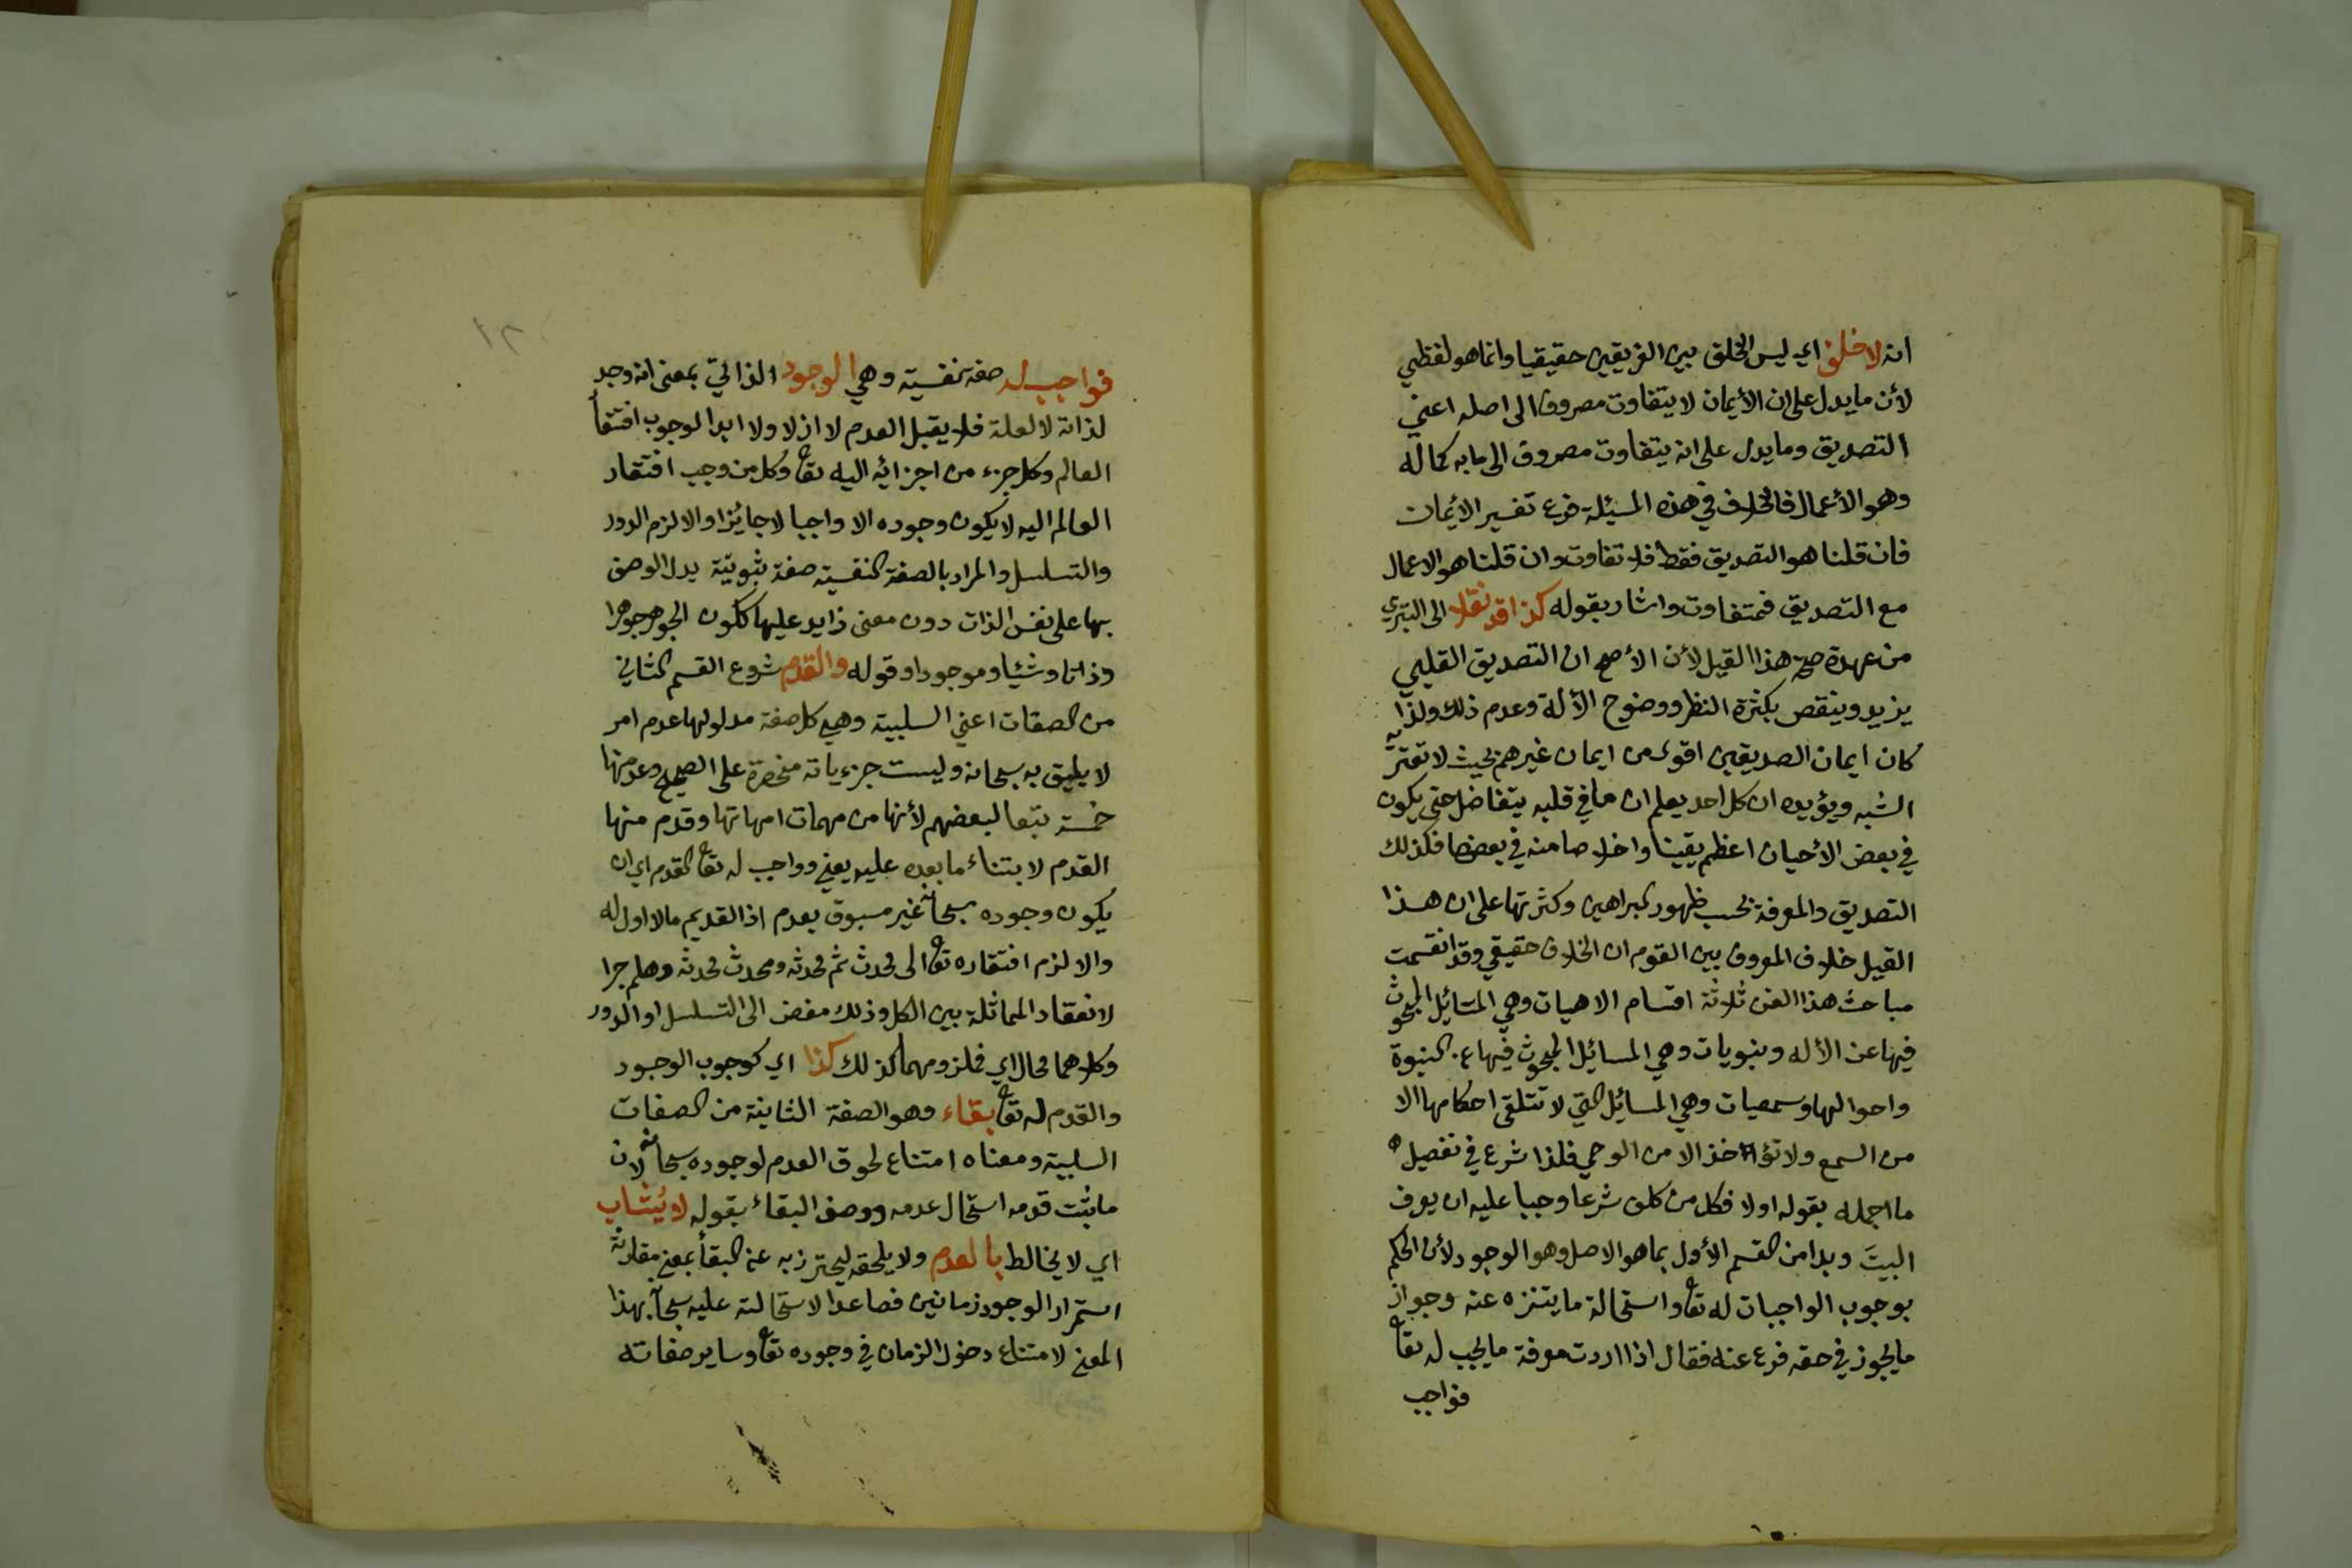 انه لا خلف اي ليس الخلف بين الفريقين حقيقيا وانما هو لفظي
لأن ما يدل على ان الأيمان لا يتفاوت مصروف الى اصله اعني
التصديق وما يدل على انه يتفاوت مصروف الى ما به كماله
وهو الأعمال فالخلاف في هذه المسئلة فرع تفسير الأيمان
فان قلنا هو التصديق فقط فلا تفاوت وان قلنا هو الاعمال
مع التصديق فمتفاوت واشار بقوله كذا قد نقلا الى التبري
من عهدة صحة هذا القيل لأن الأصح ان التصديق القلبي
يزيد وينقص بكثرة النظر ووضوح الأدلة وعدم ذلك ولذا
كان ايمان الصديقين اقوى من ايمان غيرهم بحيث لا تعتريه
الشبه ويؤيده ان كل احد يعلم ان ما في قلبه يتفاضل حتى يكون
في بعض الأحيان اعظم يقينا واخلاصا منه في بعضها فكذلك
التصديق والمعرفة بحسب ظهور البراهين وكثرتها على ان هذا
القيل خلاف المعروف بين القوم ان الخلاف حقيقي وقد انقسمت
مباحث هذا الفن ثلاثة اقسام الاهيات وهي المسائل المبحوث
فيها عن الأله ونبويات وهي المسائل المبحوث فيها عن النبوة
واحوالها وسمعيات وهي المسائل التي لا تتلقى احكامها الا
من السمع ولا تؤخذ الا من الوحي فلذا شرع في تفصيل
ما اجمله بقوله اولا فكل من كلف شرعا وجبا عليه ان يعرف
البيتَ وبدا من القسم الأول بما هو الاصل وهو الوجود لأن الحكم
بوجوب الواجبات له تعا واستحالة ما يتنزه عنه وجواز
ما يجوز في حقه فرع عنه فقال اذا اردت معرفة ما يجب له تعا
فواجب
١٢
فواجب له صفة نفسية وهي الوجود الذاتي بمعنى انه وجد
لذاته لا لعلة فلا يقبل العدم لا ازلا ولا ابدا لوجوب افتقا
العالم وكل جزء من اجزائه اليه تعا وكل من وجب افتقار
العالم اليه لا يكون وجوده الا واجبا لا جائزا والا لزم الدور
والتسلسل والمراد بالصفة النفسية صفة ثبوتية يدل الوصف
بها على نفس الذات دون معنى زايد عليها ككون الجوهر جوهرا
وذاتا وشيئا وموجودا وقوله والقدم شروع القسم الثاني
من الصفات اعني السلبية وهي كل صفة مدلولها عدم امر
لا يليق به سبحانه وليست جزءياته منحصرة على الصحيح وعد منها
خمسة تبعا لبعضهم لأنها من مهمات امهاتها وقدم منها
القدم لابتناء ما بعده عليه يعني وواجب له تعا القدم اي ان
يكون وجوده سبحانه غير مسبوق بعدم اذ القديم ما لا اول له
والا لزم افتقاره تعا الى محدث ثم محدثه ومحدث محدثه وهلم جرا
لانعقاد المماثلة بين الكل وذلك مفض الى التسلسل او الدور
وكلاهما محال اي فملزومهما كذلك كذا اي كوجوب الوجود
والقدم له تعا بقاء وهو الصفة الثانية من الصفات
السلبية ومعناه امتناع لحوق العدم لوجوده سبحانه لان
ما ثبت قدمه استحال عدمه ووصف البقاء بقوله لا يُشاب
اي لا يخالط بالعدم ولا يلحقه ليحترز به عن البقأ بمعنى مقارنة
استمرار الوجود زمانين فصاعدا لاستحالته عليه سبحا بهذا
المعنى لامتناع دخول الزمان في وجوده تعا وساير صفاته